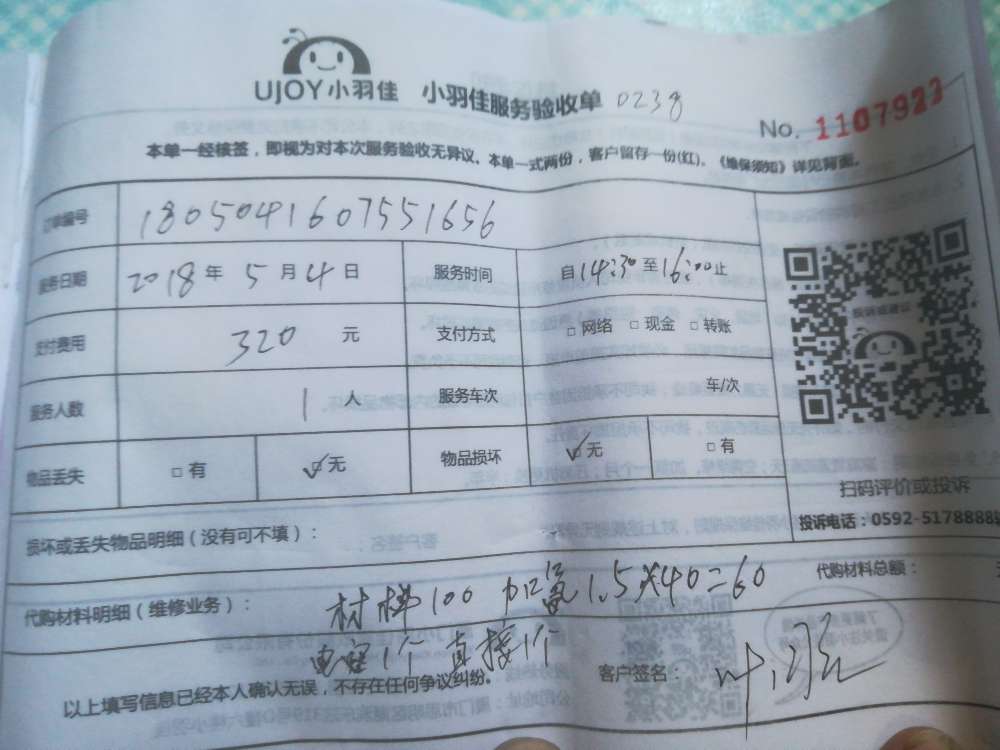 UJOY小羽佳 小羽佳服务验收单 0238
No. 1107923
本单一经核签，即视为对本次服务验收无异议。本单一式两份，客户留存一份(红)。《维保须知》详见背面。
订单编号 1805041607551656
服务日期 2018年5月4日 服务时间 自14:30至16:00止
支付费用 320 元 支付方式 □网络 □现金 □转账
服务人数 1 人 服务车次 车/次
物品丢失 □有 ☑无 物品损坏 ☑无 □有
扫码评价或投诉
投诉电话：0592-5178888
损坏或丢失物品明细（没有可不填）：
代购材料明细（维修业务）： 材梯100 加氢1.5×40=60 代购材料总额：
电容1个 直接1个
以上填写信息已经本人确认无误，不存在任何争议纠纷。 客户签名：